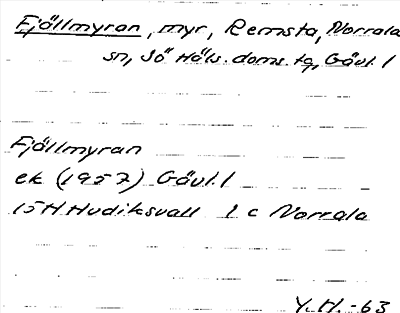 Fjällmyran, myr, Remsta, Norrala
sn, Sö Häls. doms. tg, Gävl. l
Fjällmyran
ek (1957) Gävl. l
15H Hudiksvall 1 c Norrala
Y. H. -63